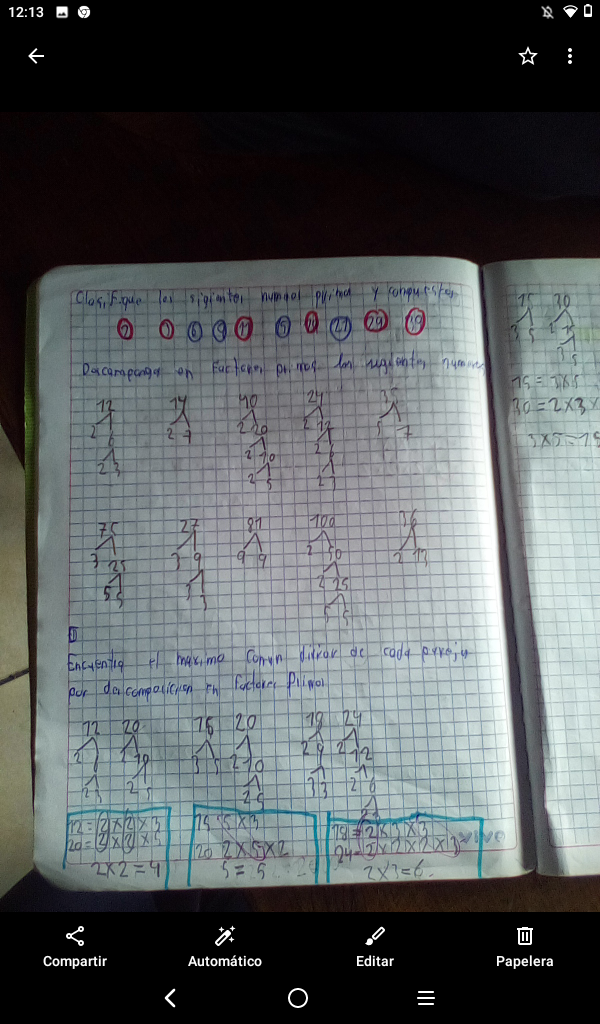 12:13
Clasifique los sigientes numeros primos y compuestos
2 7 6 9 11 21 29 19
Descamponga en Factores primos los siguientes numeros
12 14 40 24 35
2 6 2 7 2 20 2 12 5 7
2 3 2 10 2 6
2 5 2 3
75 27 81 100 36
3 25 3 9 9 9 2 50 2 13
5 5 3 3 2 25
5 5
Encuentra el maximo comun divisor de cada pareja
por descomposicion en Factores Primos
12 20 15 20 18 24
2 2 10 3 5 2 10 2 9 2 12
2 3 2 5 2 5 3 3 2 6
2 3
12 = 2 x 2 x 3
2 x 2 = 4
15 5 x 3
20 2 x 5 x 2
5 = 5
18 = 2 x 3 x 3
24 = 2 x 2 x 2 x 3
2 x 3 = 6
15 30
3 5 2 15
3 5
15 = 3 x 5
30 = 2 x 3 x
3 x 5 = 15
Compartir Automático Editar Papelera